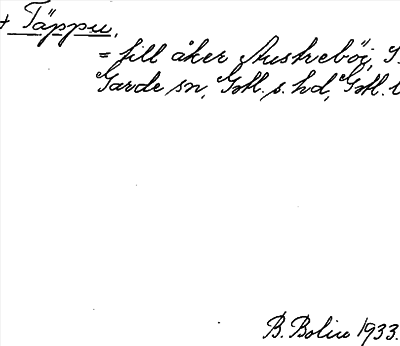 + Täppu,
= fill åker Austreböi,
Garde sn, Gotl. s. hd, Gotl. l
B. Bolin 1933.